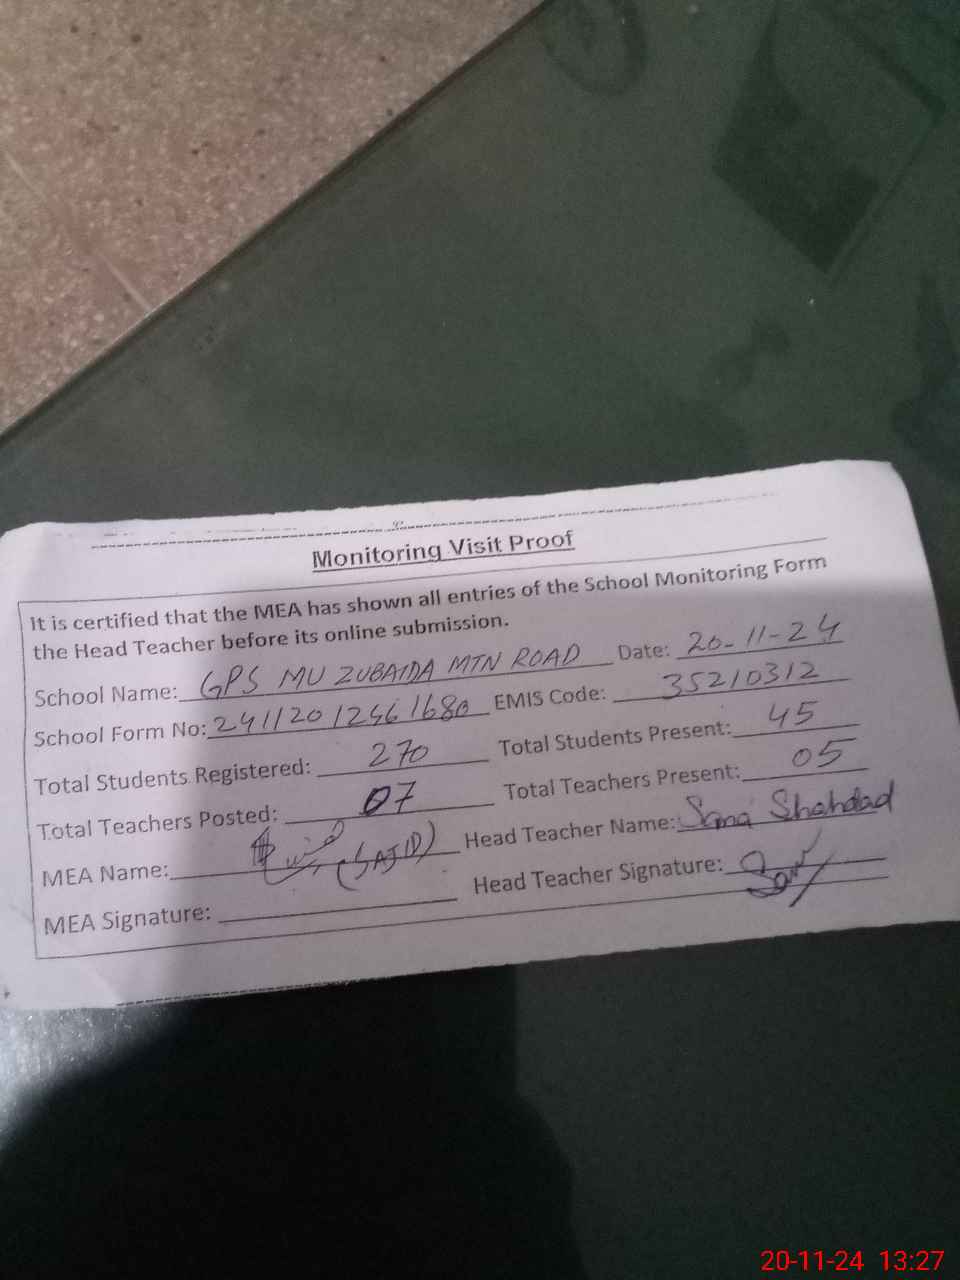 Monitoring Visit Proof
It is certified that the MEA has shown all entries of the School Monitoring Form
the Head Teacher before its online submission.
School Name: GPS MU ZUBAIDA MTN ROAD Date: 20-11-24
School Form No: 24112012461680 EMIS Code: 35210312
Total Students Registered: 270 Total Students Present: 45
Total Teachers Posted: 07 Total Teachers Present: 05
MEA Name: (SAJID) Head Teacher Name: Sana Shahdad
MEA Signature: Head Teacher Signature:
20-11-24 13:27